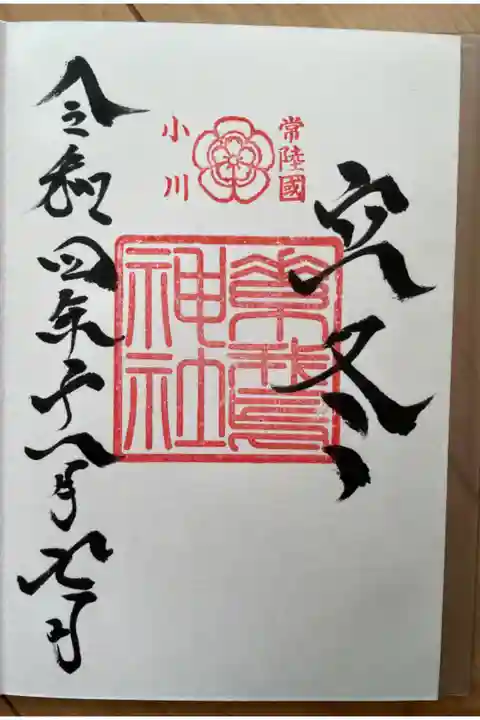 立冬
常陸國
小川
素鵞
神社
令和四年十一月七日